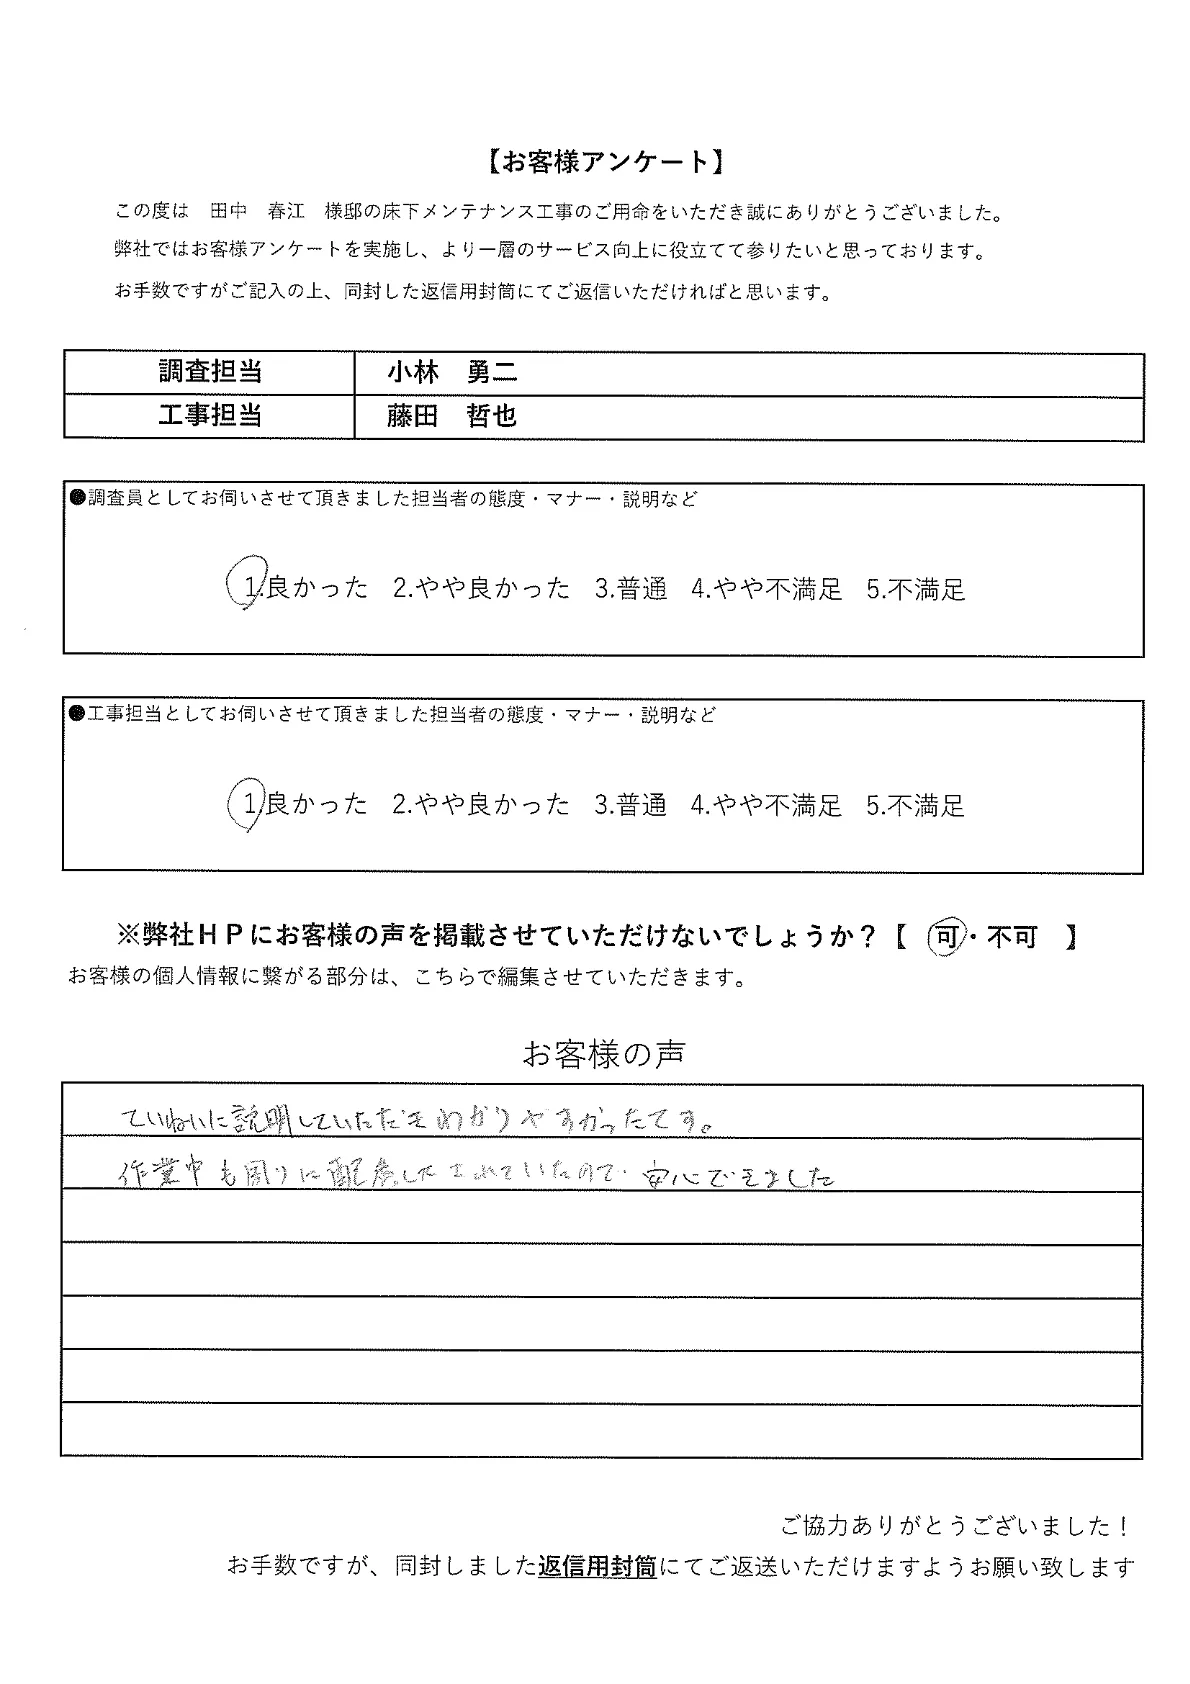 【お客様アンケート】
この度は　田中　春江　様邸の床下メンテナンス工事のご用命をいただき誠にありがとうございました。
弊社ではお客様アンケートを実施し、より一層のサービス向上に役立てて参りたいと思っております。
お手数ですがご記入の上、同封した返信用封筒にてご返信いただければと思います。
調査担当　小林　勇二
工事担当　藤田　哲也
●調査員としてお伺いさせて頂きました担当者の態度・マナー・説明など
1.良かった　2.やや良かった　3.普通　4.やや不満足　5.不満足
●工事担当としてお伺いさせて頂きました担当者の態度・マナー・説明など
1.良かった　2.やや良かった　3.普通　4.やや不満足　5.不満足
※弊社ＨＰにお客様の声を掲載させていただけないでしょうか？【　可・不可　】
お客様の個人情報に繋がる部分は、こちらで編集させていただきます。
お客様の声
ていねいに説明していただきわかりやすかったです。
作業中も周りに配慮してくれていたので 安心できました
ご協力ありがとうございました！
お手数ですが、同封しました返信用封筒にてご返送いただけますようお願い致します